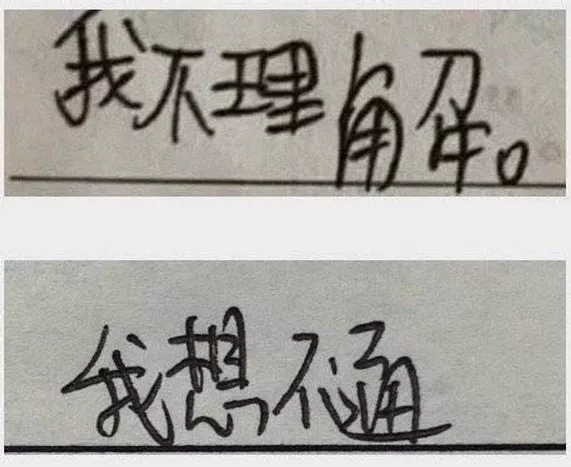 我不理解。
我想不通